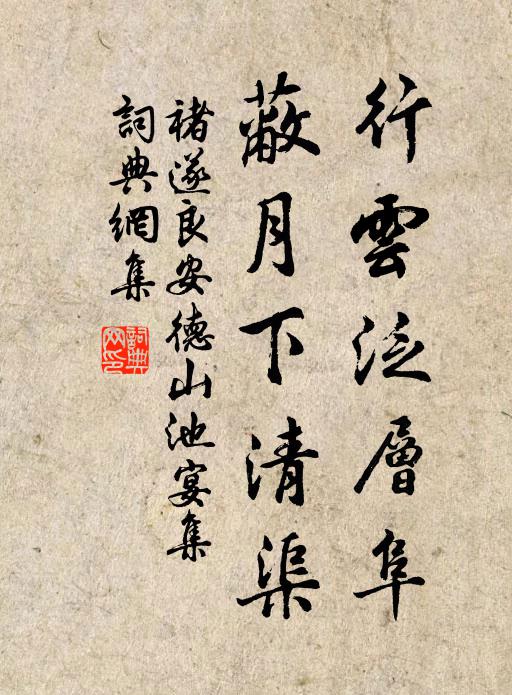 行雲泛層阜
蔽月下清渠
褚遂良安德山池宴集
詞典網集
詞典网印